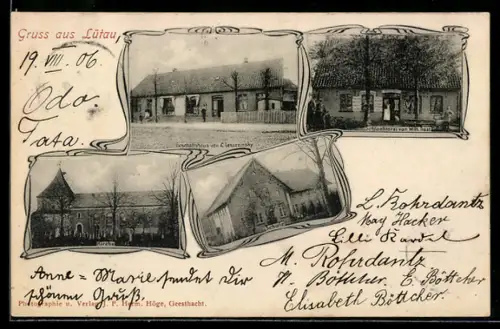 Gruss aus Lütau,
19 VIII. 06
Odo.
Tata.
Geschäftshaus von
von Wilh.
Kirche
L. Rohrdantz
Kay Hacker
Lilli Kardel
M. Rohrdantz
W. Böttcher E. Böttcher
Elisabeth Böttcher.
Anne = Marie sendet Dir
schönen Gruß.
Photographie u. Verlag J. F. Heinr. Höge, Geesthacht.